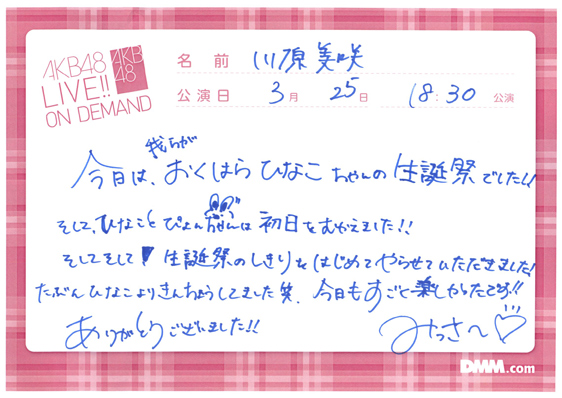 AKB48
LIVE!!
ON DEMAND
AKB
48
名前 川原美咲
公演日 3月 25日 18:30 公演
我らが
今日は、おくはらひなこちゃんの生誕祭でした!!
そして、ひなことぴょんちゃんは初日をむかえました!!
そしてそして 生誕祭のしきりをはじめてやらせていただきました!
たぶんひなこよりきんちょうしてました笑、今日もすごく楽しかったです!!
ありがとうございました!! みっさー♡
DMM.com